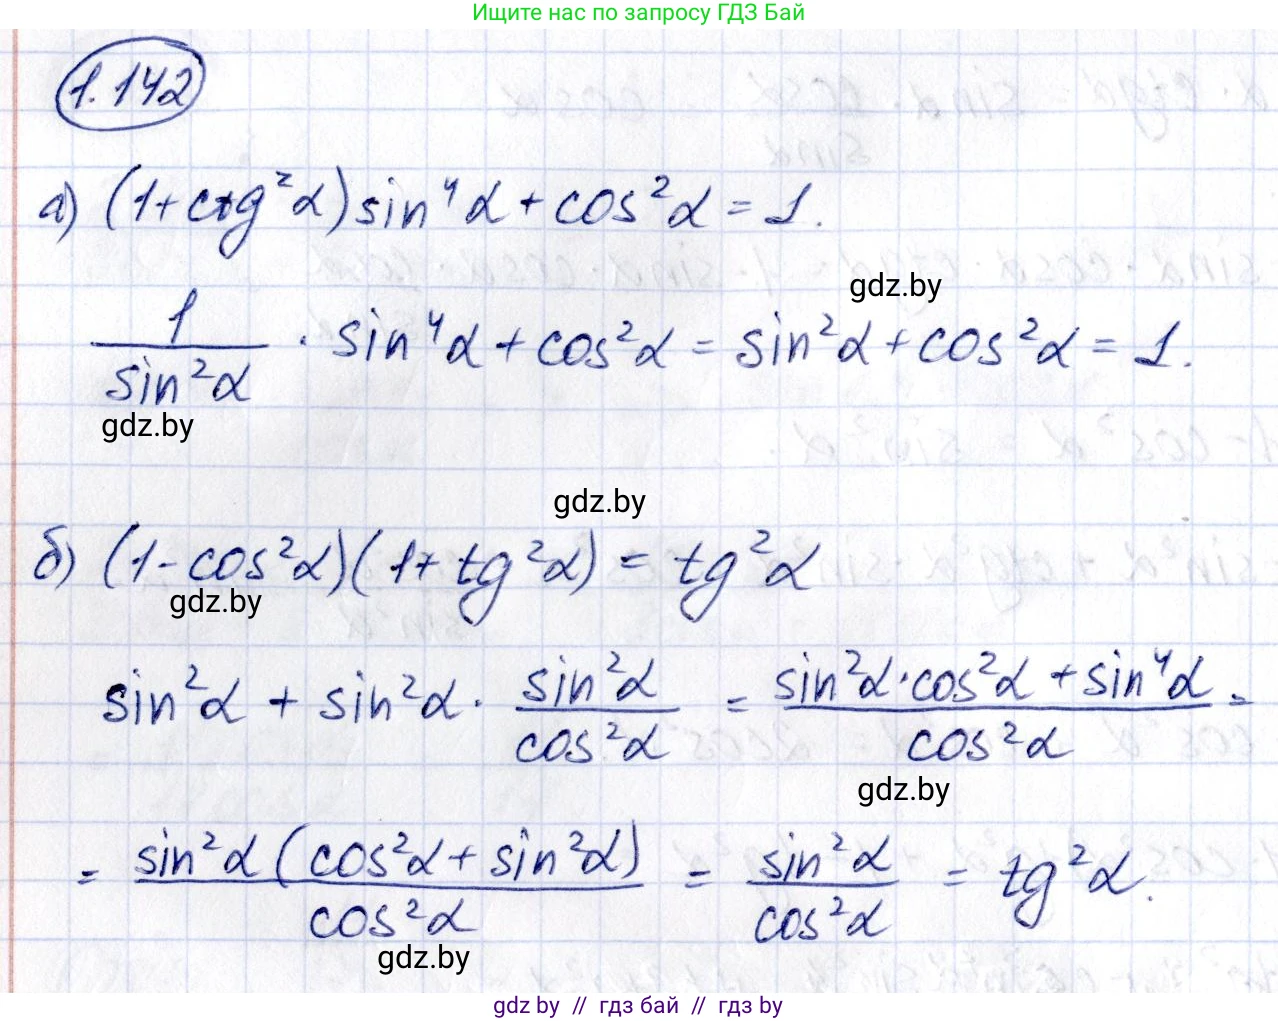 Ищите нас по запросу ГДЗ Бай
1.142
а) (1+ctg²α)sin⁴α+cos²α=1.
gdz.by
1/sin²α · sin⁴α+cos²α = sin²α+cos²α = 1.
gdz.by
gdz.by
б) (1-cos²α)(1+tg²α) = tg²α
gdz.by
sin²α + sin²α · sin²α/cos²α = (sin²α·cos²α+sin⁴α)/cos²α =
gdz.by
= sin²α(cos²α+sin²α)/cos²α = sin²α/cos²α = tg²α.
gdz.by
gdz by // гдз бай // гдз by